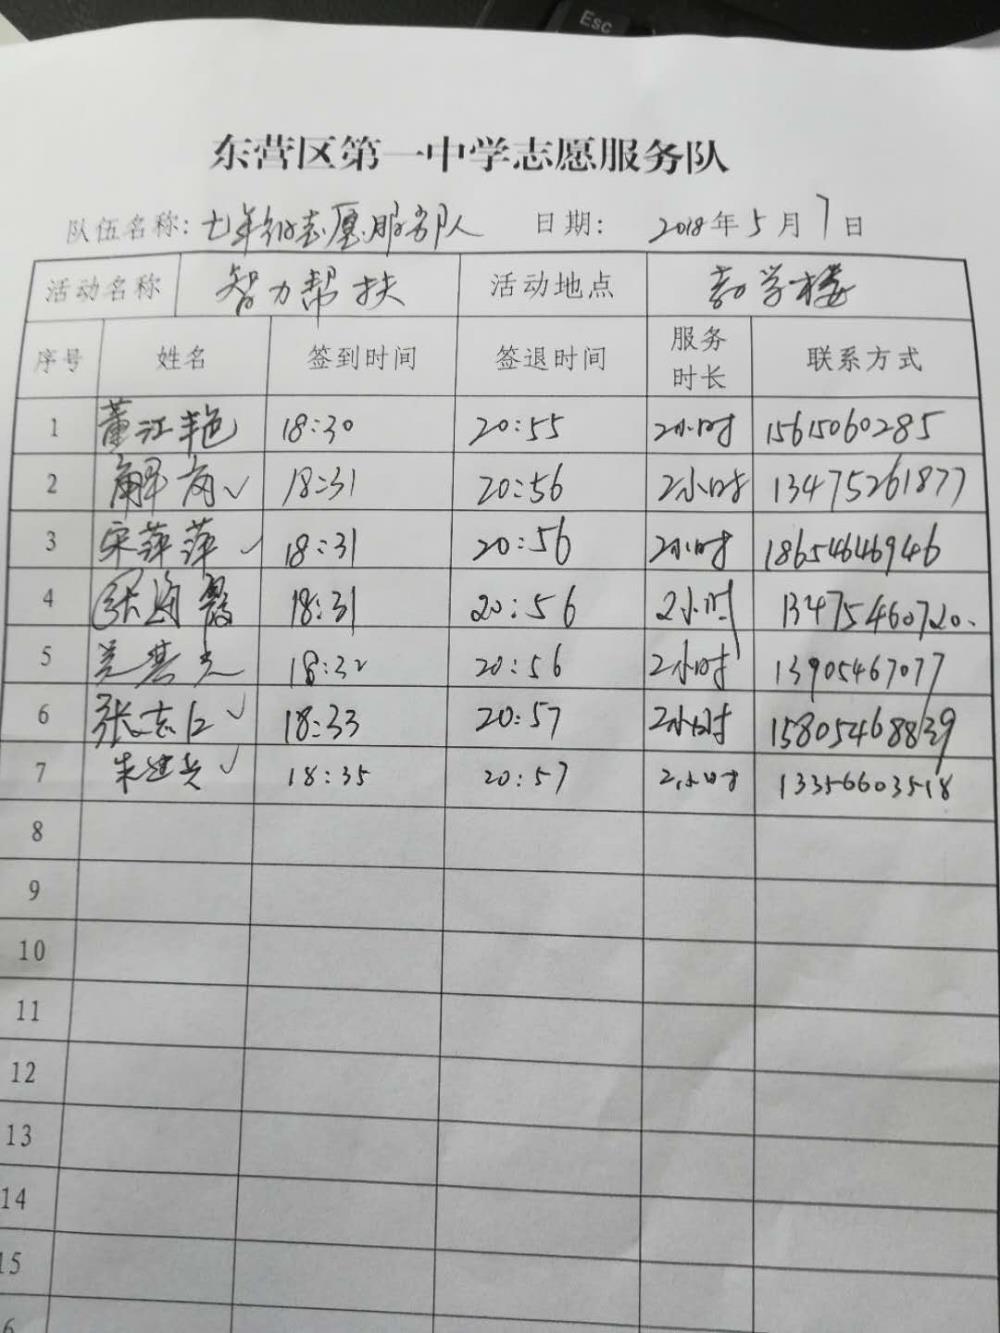 Esc
东营区第一中学志愿服务队
队伍名称: 七年级志愿服务队 日期: 2018年5月7日
活动名称 智力帮扶 活动地点 教学楼
序号 姓名 签到时间 签退时间 服务时长 联系方式
1 董江艳 18:30 20:55 2小时 15615060285
2 解岗✓ 18:31 20:56 2小时 13475261877
3 宋萍萍✓ 18:31 20:56 2小时 18654646946
4 张海霞 18:31 20:56 2小时 13475460720.
5 18:32 20:56 2小时 13905467077
6 张志仁✓ 18:33 20:57 2小时 15805468839
7 朱建兵✓ 18:35 20:57 2小时 13356603518
8
9
10
11
12
13
14
15
6